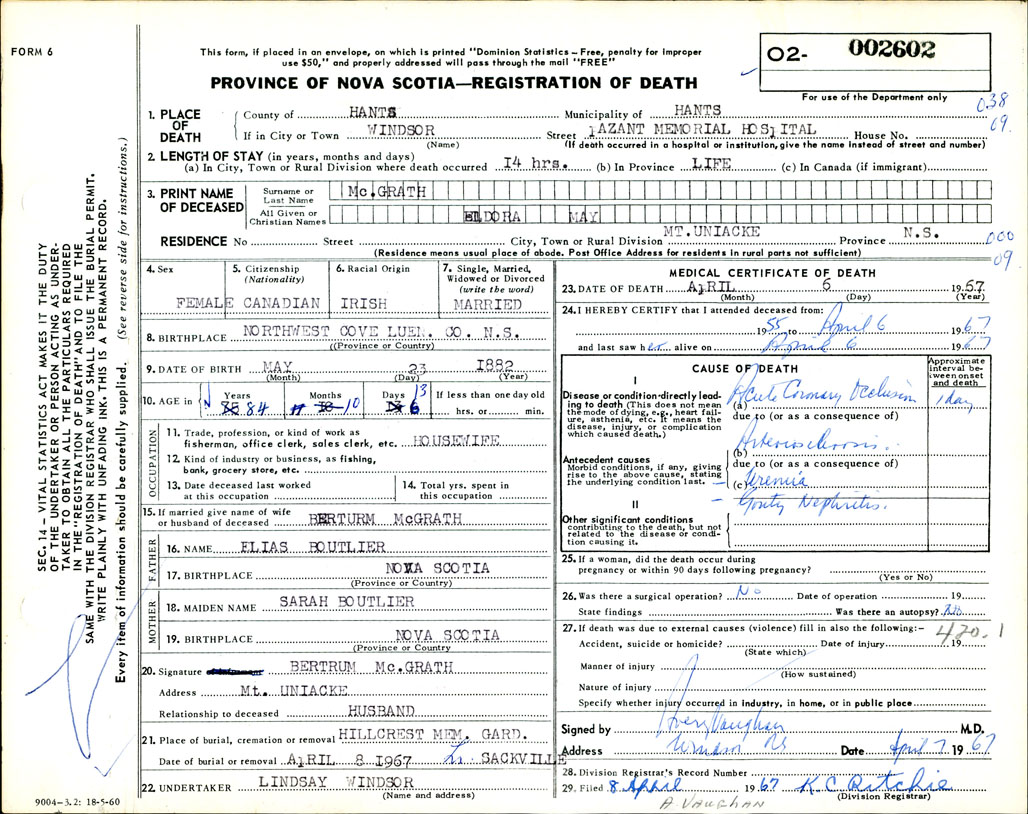 FORM 6
This form, if placed in an envelope, on which is printed "Dominion Statistics – Free, penalty for improper
use $50," and properly addressed will pass through the mail "FREE"
O2- 002602
PROVINCE OF NOVA SCOTIA—REGISTRATION OF DEATH
For use of the Department only
038
09.
1. PLACE OF DEATH
County of HANTS Municipality of HANTS
If in City or Town WINDSOR Street AZANT MEMORIAL HOSITAL House No.
(Name) (If death occurred in a hospital or institution, give the name instead of street and number)
2. LENGTH OF STAY (in years, months and days)
(a) In City, Town or Rural Division where death occurred 14 hrs. (b) In Province LIFE (c) In Canada (if immigrant)
3. PRINT NAME OF DECEASED
Surname or Last Name Mc.GRATH
All Given or Christian Names ELDORA MAY
RESIDENCE No Street City, Town or Rural Division MT.UNIACKE Province N.S.
000
09
(Residence means usual place of abode. Post Office Address for residents in rural parts not sufficient)
4. Sex FEMALE
5. Citizenship (Nationality) CANADIAN
6. Racial Origin IRISH
7. Single, Married, Widowed or Divorced (write the word) MARRIED
8. BIRTHPLACE NORTHWEST COVE LUEN. CO. N.S.
(Province or Country)
9. DATE OF BIRTH MAY 23 1882
(Month) (Day) (Year)
10. AGE in Years 84 10 Days 13 If less than one day old
hrs. or min.
OCCUPATION
11. Trade, profession, or kind of work as
fisherman, office clerk, sales clerk, etc. HOUSEWIFE
12. Kind of industry or business, as fishing,
bank, grocery store, etc.
13. Date deceased last worked at this occupation
14. Total yrs. spent in this occupation
15. If married give name of wife
or husband of deceased BERTURM McGRATH
FATHER
16. NAME ELIAS BOUTLIER
17. BIRTHPLACE NOVA SCOTIA
(Province or Country)
MOTHER
18. MAIDEN NAME SARAH BOUTLIER
19. BIRTHPLACE NOVA SCOTIA
(Province or Country)
20. Signature BERTRUM Mc.GRATH
Address Mt. UNIACKE
Relationship to deceased HUSBAND
21. Place of burial, cremation or removal HILLCREST MEM. GARD.
Date of burial or removal 8 1967 SACKVILLE
22. UNDERTAKER LINDSAY WINDSOR
(Name and address)
9004-3.2: 18-5-60
MEDICAL CERTIFICATE OF DEATH
23. DATE OF DEATH 6 1967
(Month) (Day) (Year)
24. I HEREBY CERTIFY that I attended deceased from:
1955 to April 6 1967
and last saw her alive on April 6 1967
CAUSE OF DEATH
Approximate interval between onset and death
I
Disease or condition directly leading to death (This does not mean the mode of dying, e.g., heart failure, asthenia, etc. It means the disease, injury, or complication which caused death.)
(a) Acute Coronary Occlusion 1 day
due to (or as a consequence of)
Arteriosclerosis.
(b)
Antecedent causes
Morbid conditions, if any, giving rise to the above cause, stating the underlying condition last.
due to (or as a consequence of)
(c) Uremia
II
Gouty Nephritis.
Other significant conditions
contributing to the death, but not related to the disease or condition causing it.
25. If a woman, did the death occur during
pregnancy or within 90 days following pregnancy?
(Yes or No)
26. Was there a surgical operation? No Date of operation 19
State findings Was there an autopsy? No
27. If death was due to external causes (violence) fill in also the following:–
420.1
Accident, suicide or homicide? Date of injury 19
(State which)
Manner of injury
(How sustained)
Nature of injury
Specify whether injury occurred in industry, in home, or in public place
Signed by Avery Vaughan M.D.
Address Windsor NS Date April 7 1967
28. Division Registrar's Record Number
29. Filed 8 April 1967 K C Ritchie
(Division Registrar)
A. VAUGHAN
SEC. 14 – VITAL STATISTICS ACT MAKES IT THE DUTY
OF THE UNDERTAKER OR PERSON ACTING AS UNDER-
TAKER TO OBTAIN ALL THE PARTICULARS REQUIRED
IN THE "REGISTRATION OF DEATH" AND TO FILE THE
SAME WITH THE DIVISION REGISTRAR WHO SHALL ISSUE THE BURIAL PERMIT.
WRITE PLAINLY WITH UNFADING INK. THIS IS A PERMANENT RECORD.
Every item of information should be carefully supplied. (See reverse side for instructions.)